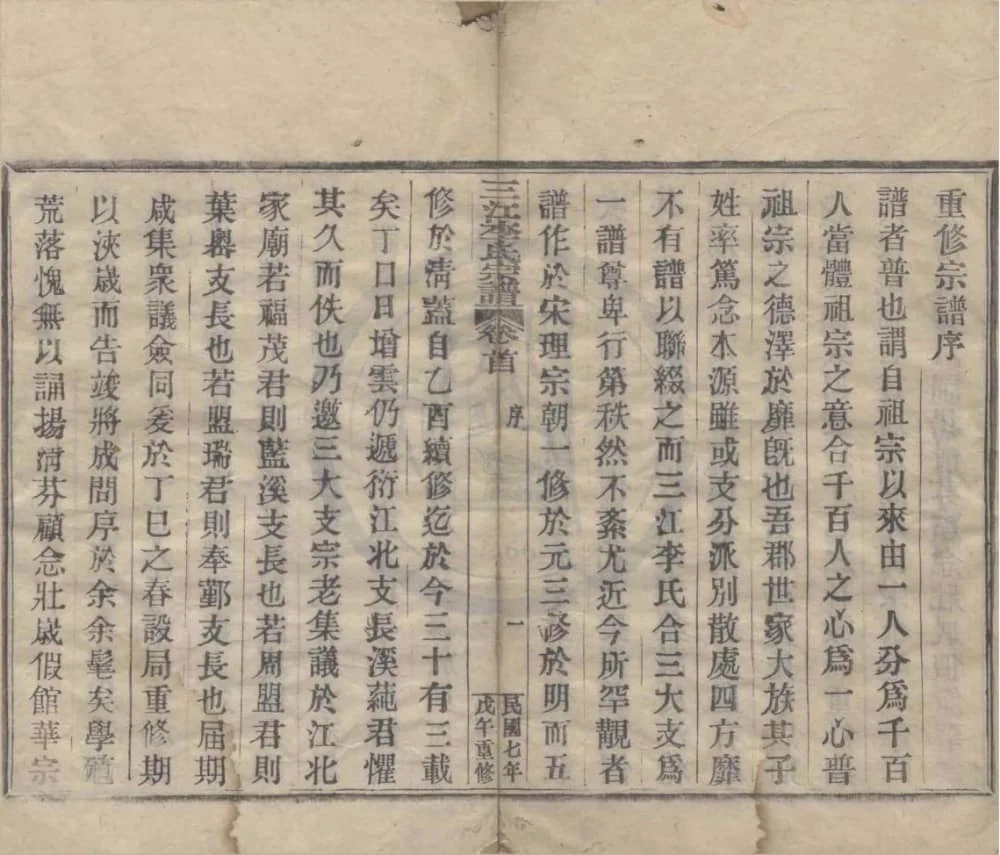 重修宗譜序
譜者普也謂自祖宗以來由一人分爲千百
人當體祖宗之意合千百人之心爲一心普
祖宗之德澤於靡旣也吾郡世家大族其子
姓率篤念本源雖或支分派別散處四方靡
不有譜以聯綴之而三江李氏合三大支爲
一譜尊卑行第秩然不紊尤近今所罕觀者
譜作於宋理宗朝一修於元三修於明而五
三江李氏宗譜 卷首 序 一 民國七年
戊午重修
修於淸蓋自乙酉續修迄於今三十有三載
矣丁口日增雲仍遞衍江北支長溪蒓君懼
其久而佚也乃邀三大支宗老集議於江北
家廟若福茂君則藍溪支長也若周盟君則
葉嶴支長也若盟瑞君則奉鄞支長也届期
咸集衆議僉同爰於丁巳之春設局重修期
以浹歲而告竣將成問序於余余髦矣學殖
荒落愧無以誦揚淸芬顧念壯歲假館華宗